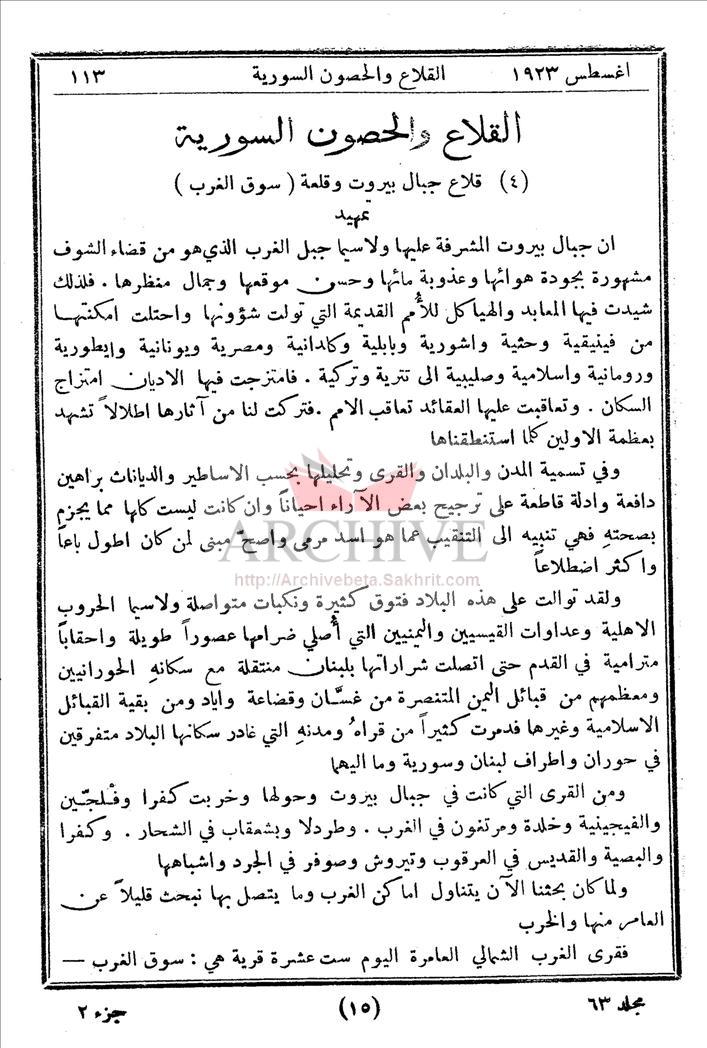 اغسطس ١٩٢٣ القلاع والحصون السورية ١١٣
القلاع والحصون السورية
(٤) قلاع جبال بيروت وقلعة ( سوق الغرب )
تمهيد
ان جبال بيروت المشرفة عليها ولاسيما جبل الغرب الذي هو من قضاء الشوف
مشهورة بجودة هوائها وعذوبة مائها وحسن موقعها وجمال منظرها . فلذلك
شيدت فيها المعابد والهياكل للأُمم القديمة التي تولت شؤونها واحتلت امكنتها
من فينيقية وحثية واشورية وبابلية وكلدانية ومصرية ويونانية وإيطورية
ورومانية واسلامية وصليبية الى تترية وتركية . فامتزجت فيها الاديان امتزاج
السكان . وتعاقبت عليها العقائد تعاقب الامم . فتركت لنا من آثارها اطلالاً تشهد
بعظمة الاولين كلما استنطقناها
وفي تسمية المدن والبلدان والقرى وتحليلها بحسب الاساطير والديانات براهين
دافعة وادلة قاطعة على ترجيح بعض الآراء احياناً وان كانت ليست كلها مما يجزم
بصحتهِ فهي تنبيه الى التنقيب عما هو اسد مرمى واصحّ مبنى لمن كان اطول باعاً
واكثر اضطلاعاً
ARCHIVE
http://Archivebeta.Sakhrit.com
ولقد توالت على هذه البلاد فتوق كثيرة ونكبات متواصلة ولاسيما الحروب
الاهلية وعداوات القيسيين واليمنيين التي أُصلي ضرامها عصوراً طويلة واحقاباً
مترامية في القدم حتى اتصلت شراراتها بلبنان منتقلة مع سكانهِ الحورانيين
ومعظمهم من قبائل اليمن المتنصرة من غسَّان وقضاعة واياد ومن بقية القبائل
الاسلامية وغيرها فدمرت كثيراً من قراهُ ومدنهِ التي غادر سكانها البلاد متفرقين
في حوران واطراف لبنان وسورية وما اليهما
ومن القرى التي كانت في جبال بيروت وحولها وخربت كفرا وفلجّين
والفيجينية وخلدة ومرتغون في الغرب . وطردلا وبشعقاب في الشحار . وكفرا
والبصية والقديس في العرقوب وتيروش وصوفر في الجرد واشباهها
ولما كان بحثنا الآن يتناول اماكن الغرب وما يتصل بها نبحث قليلاً عن
العامر منها والخرب
فقرى الغرب الشمالي العامرة اليوم ست عشرة قرية هي : سوق الغرب —
مجلد ٦٣ (١٥) جزء ٢